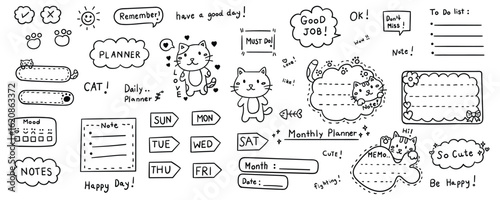 Remember!
have a good day!
GOOD
JOB!
OK!
Don't
Miss!
To Do list:
MUST DO!
Note!
PLANNER
LOVE
CAT!
Daily..
Planner
like!
Note!
Mood
Note
SUN
MON
TUE
WED
THU
FRI
SAT
Monthly Planner
Hi!
MEMO..
So Cute
NOTES
Happy Day!
Month :
Date :
CUTE!
fighting!
Be Happy!